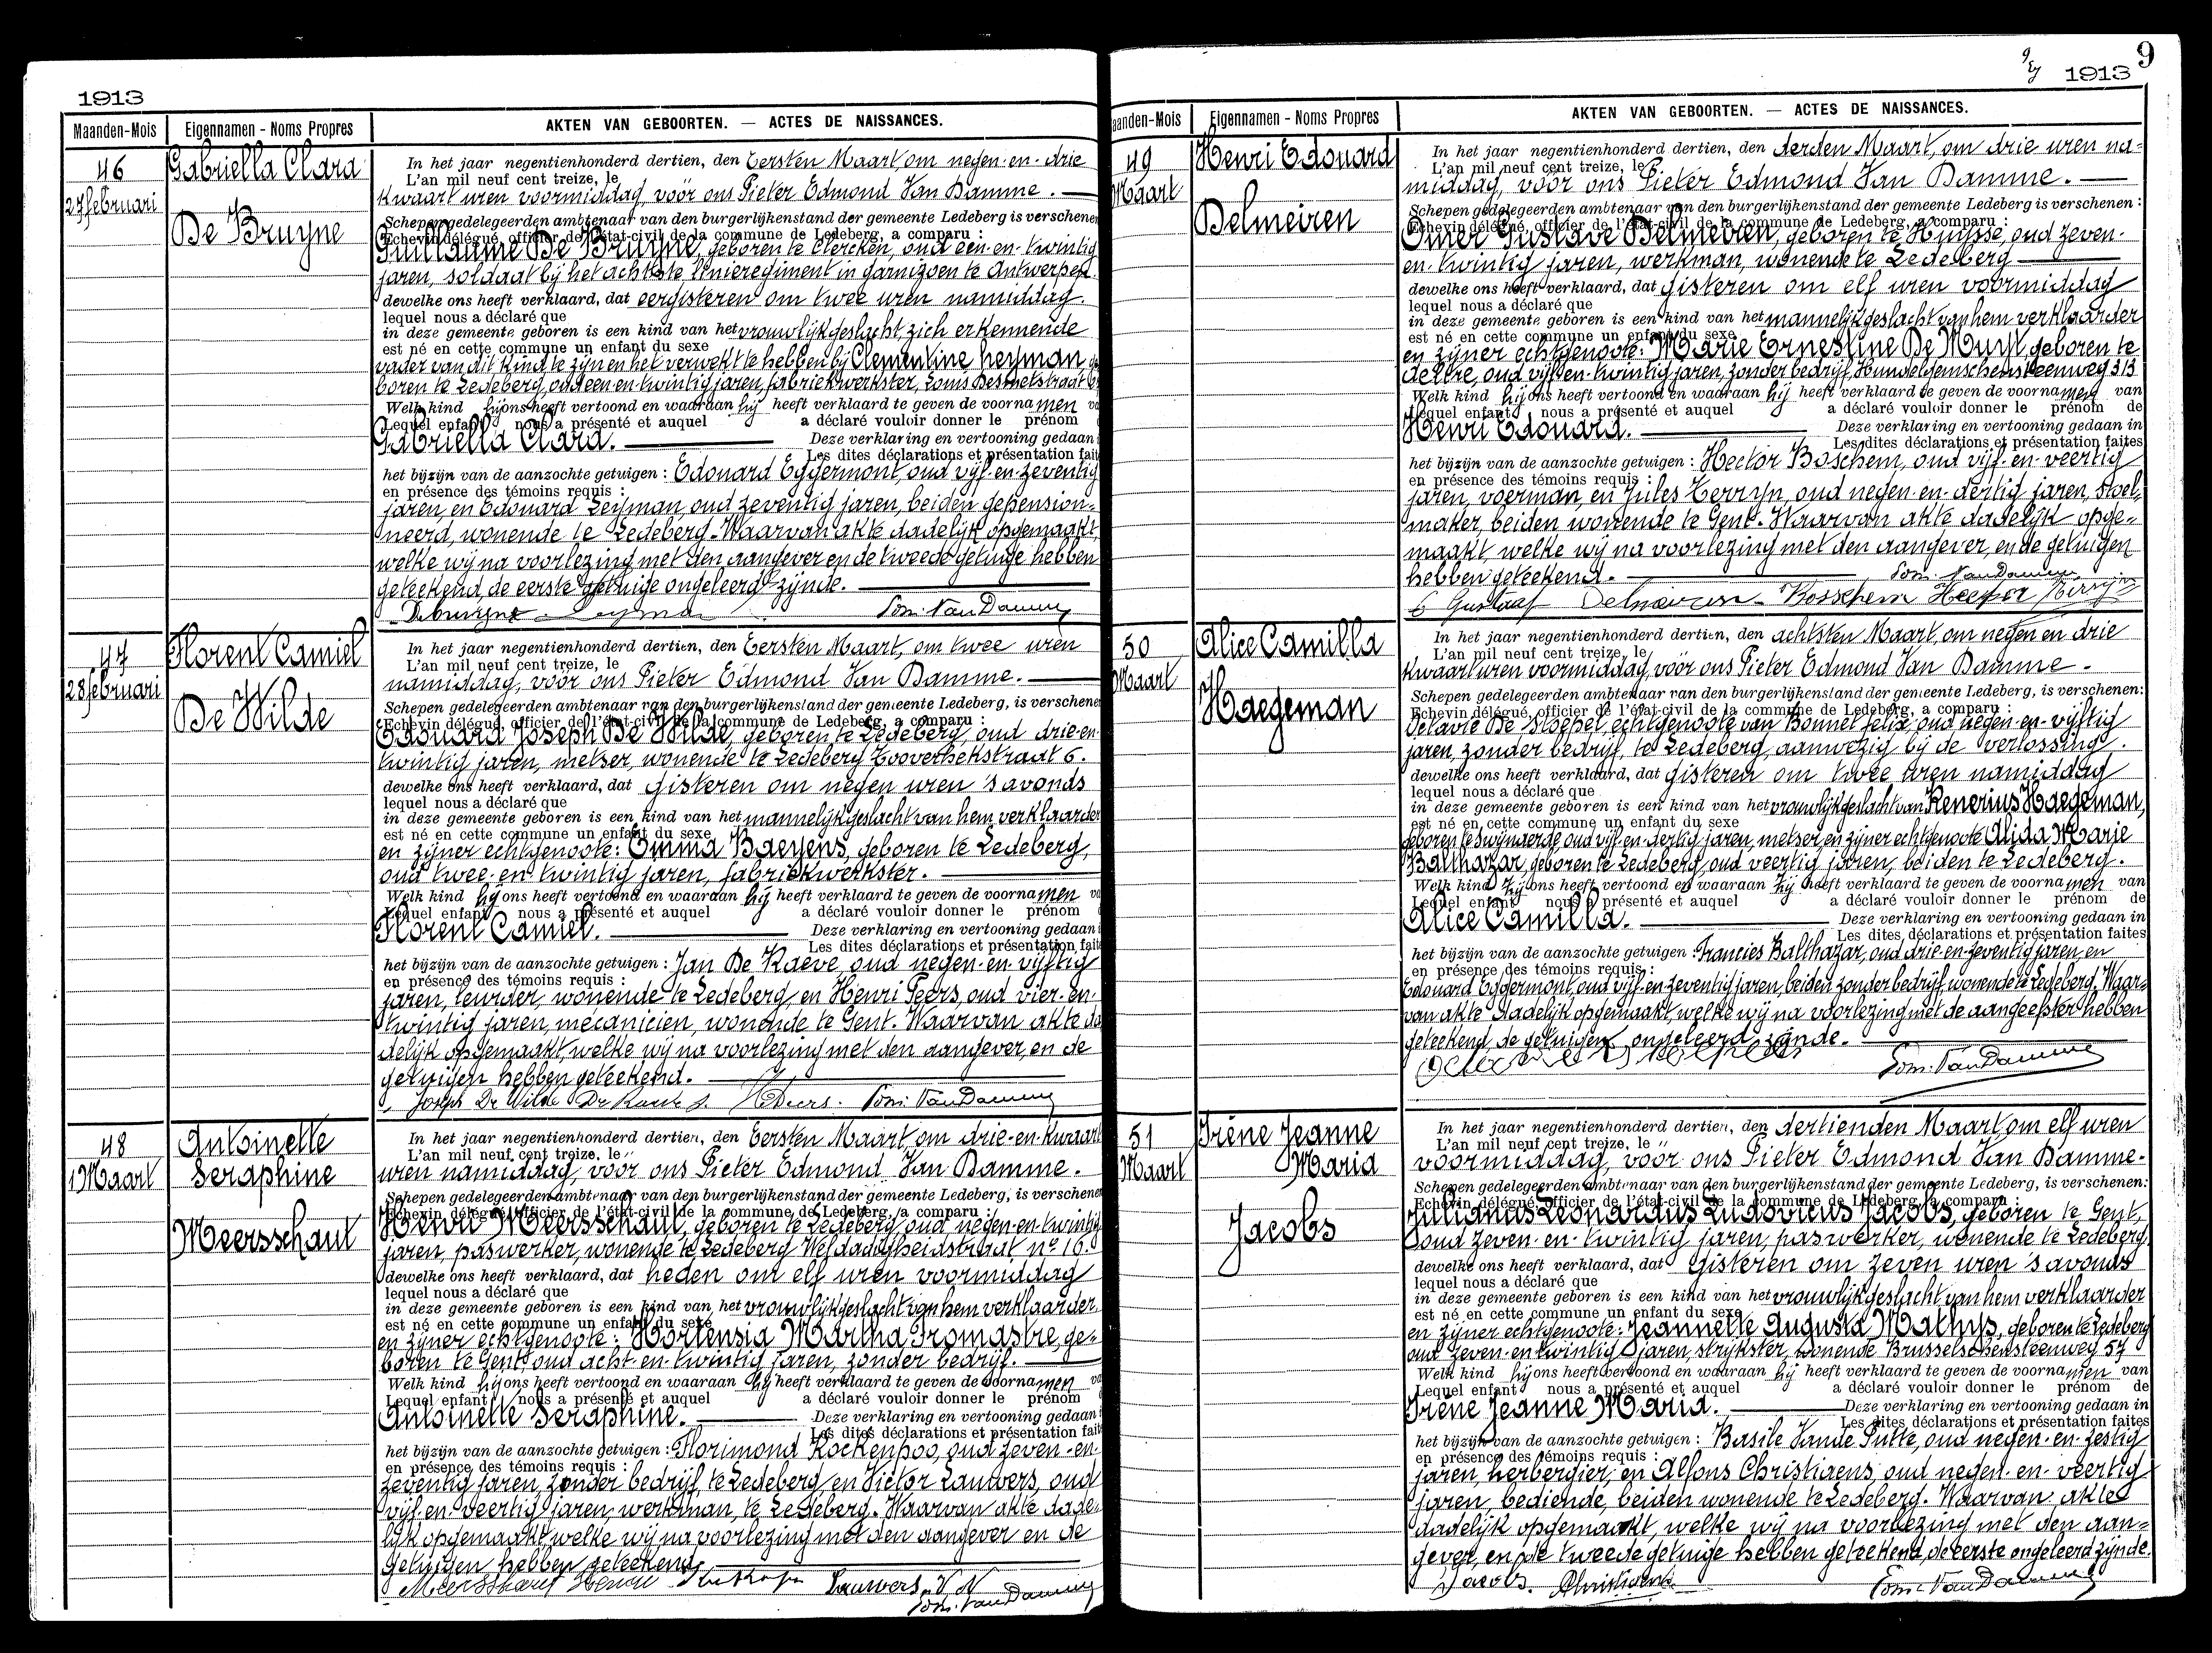 1913
Maanden-Mois
Eigennamen - Noms Propres
AKTEN VAN GEBOORTEN. — ACTES DE NAISSANCES.
46
27 februari
Gabriella Clara
De Bruyne
In het jaar negentienhonderd dertien, den Eersten Maart, om negen-en-drie
L'an mil neuf cent treize, le
kwaart uren voormiddag, voor ons Pieter Edmond Van Damme.
Schepen gedelegeerden ambtenaar van den burgerlijkenstand der gemeente Ledeberg is verschenen
Echevin délégué, officier de l'état-civil de la commune de Ledeberg, a comparu :
Guillaume De Bruyne, geboren te Clercken, oud een-en-twintig
jaren, soldaat bij het achtste linieregiment in garnizoen te Antwerpen.
dewelke ons heeft verklaard, dat eergisteren om twee uren namiddag.
lequel nous a déclaré que
in deze gemeente geboren is een kind van het vrouwlijkgeslacht, zich erkennende
est né en cette commune un enfant du sexe
vader van dit kind te zijn en het verwekt te hebben bij Clementine Leyman, ge
boren te Ledeberg, oud een-en-twintig jaren, fabriekwerkster, Louis Desmetstraat
Welk kind hij ons heeft vertoond en waaraan hij heeft verklaard te geven de voornamen
Lequel enfant nous a présenté et auquel a déclaré vouloir donner le prénom
Gabriella Clara. Deze verklaring en vertooning gedaan
Les dites déclarations et présentation fait
het bijzijn van de aanzochte getuigen : Edouard Eggermont, oud vijf-en-zeventig
en présence des témoins requis :
jaren, en Edouard Leyman, oud zeventig jaren, beiden gepension-
neerd, wonende te Ledeberg. Waarvan akte dadelijk opgemaakt,
welke wij na voorlezing met den aangever en de tweede getuige hebben
geteekend, de eerste getuige ongeleerd zijnde.
Debruyne Leyman Edm. Van Damme
47
28 februari
Florent Camiel
De Wilde
In het jaar negentienhonderd dertien, den Eersten Maart, om twee uren
L'an mil neuf cent treize, le
namiddag, voor ons Pieter Edmond Van Damme.
Schepen gedelegeerden ambtenaar van den burgerlijkenstand der gemeente Ledeberg, is verschene
Echevin délégué, officier de l'état-civil de la commune de Ledeberg, a comparu :
Edouard Joseph De Wilde, geboren te Ledeberg, oud drie-en-
twintig jaren, metser, wonende te Ledeberg Tooverhekstraat 6.
dewelke ons heeft verklaard, dat gisteren om negen uren 's avonds
lequel nous a déclaré que
in deze gemeente geboren is een kind van het mannelijkgeslacht van hem verklaarder
est né en cette commune un enfant du sexe
en zijner echtgenoote: Emma Baeyens, geboren te Ledeberg,
oud twee-en-twintig jaren, fabriekwerkster.
Welk kind hij ons heeft vertoond en waaraan hij heeft verklaard te geven de voornamen
Lequel enfant nous a présenté et auquel a déclaré vouloir donner le prénom
Florent Camiel. Deze verklaring en vertooning gedaan
Les dites déclarations et présentation fait
het bijzijn van de aanzochte getuigen : Jan De Raeve, oud negen-en-vijftig
en présence des témoins requis :
jaren, leurder wonende te Ledeberg en Henri Peers, oud vier-en-
twintig jaren, mécanicien, wonende te Gent. Waarvan akte da
delijk opgemaakt, welke wij na voorlezing met den aangever, en de
getuigen hebben geteekend.
Joseph De Wilde De Raeve J. H Peers. Edm. Van Damme
48
1 Maart
Antoinette
Seraphine
Meersschaut
In het jaar negentienhonderd dertien, den Eersten Maart, om drie-en-kwaart
L'an mil neuf cent treize, le
uren namiddag, voor ons Pieter Edmond Van Damme.
Schepen gedelegeerden ambtenaar van den burgerlijkenstand der gemeente Ledeberg, is verschene
Echevin délégué, officier de l'état-civil de la commune de Ledeberg, a comparu :
Henri Meersschaut, geboren te Ledeberg, oud negen-en-twintig
jaren, paswerker, wonende te Ledeberg Weldadigheidstraat nº 16.
dewelke ons heeft verklaard, dat heden om elf uren voormiddag
lequel nous a déclaré que
in deze gemeente geboren is een kind van het vrouwlijkgeslacht van hem verklaarder
est né en cette commune un enfant du sexe
en zijner echtgenoote: Hortensia Martha Fromastre, ge-
boren te Gent, oud acht-en-twintig jaren, zonder bedrijf.
Welk kind hij ons heeft vertoond en waaraan hij heeft verklaard te geven de voornamen
Lequel enfant nous a présenté et auquel a déclaré vouloir donner le prénom
Antoinette Seraphine. Deze verklaring en vertooning gedaan
Les dites déclarations et présentation fait
het bijzijn van de aanzochte getuigen : Florimond Kockenpoo, oud zeven-en-
en présence des témoins requis :
zeventig jaren, zonder bedrijf, te Ledeberg, en Victor Lauwers, oud
vijf-en-veertig jaren, werkman, te Ledeberg. Waarvan akte dade-
lijk opgemaakt, welke wij na voorlezing met den aangever en de
getuigen hebben geteekend.
Meersschaut Henri Lauwers V
Edm. Van Damme
9
1913
Maanden-Mois
Eigennamen - Noms Propres
AKTEN VAN GEBOORTEN. — ACTES DE NAISSANCES.
49
Maart
Henri Edouard
Delmeiren
In het jaar negentienhonderd dertien, den derden Maart, om drie uren na-
L'an mil neuf cent treize, le
middag, voor ons Pieter Edmond Van Damme.
Schepen gedelegeerden ambtenaar van den burgerlijkenstand der gemeente Ledeberg is verschenen :
Echevin délégué, officier de l'état-civil de la commune de Ledeberg, a comparu :
Omer Gustave Delmeiren, geboren te Huysse, oud zeven-
en-twintig jaren, werkman, wonende te Ledeberg
dewelke ons heeft verklaard, dat gisteren om elf uren voormiddag
lequel nous a déclaré que
in deze gemeente geboren is een kind van het mannelijkgeslacht van hem verklaarder
est né en cette commune un enfant du sexe
en zijner echtgenoote: Marie Ernestine De Muyt, geboren te
Aeltre, oud vijf-en-twintig jaren, zonder bedrijf, Hundelgemschensteenweg 313
Welk kind hij ons heeft vertoond en waaraan hij heeft verklaard te geven de voornamen van
Lequel enfant nous a présenté et auquel a déclaré vouloir donner le prénom de
Henri Edouard. Deze verklaring en vertooning gedaan in
Les dites déclarations et présentation faites
het bijzijn van de aanzochte getuigen : Hector Boschem, oud vijf-en-veertig
en présence des témoins requis :
jaren, voerman, en Jules Terryn, oud negen-en-dertig jaren, stoel-
maker, beiden wonende te Gent. Waarvan akte dadelijk opge-
maakt, welke wij na voorlezing met den aangever, en de getuigen
hebben geteekend. Edm. Van Damme
Gustaaf Delmeiren Bosschem Terryn
50
Maart
Alice Camilla
Haegeman
In het jaar negentienhonderd dertien, den achtsten Maart, om negen en drie
L'an mil neuf cent treize, le
kwaart uren voormiddag, voor ons Pieter Edmond Van Damme.
Schepen gedelegeerden ambtenaar van den burgerlijkenstand der gemeente Ledeberg, is verschenen:
Echevin délégué, officier de l'état-civil de la commune de Ledeberg, a comparu :
Octavie De Stoepel, echtgenoote van Bonnet felix, oud negen-en-vijftig
jaren, zonder bedrijf, te Ledeberg, aanwezig bij de verlossing.
dewelke ons heeft verklaard, dat gisteren om twee uren namiddag
lequel nous a déclaré que
in deze gemeente geboren is een kind van het vrouwlijkgeslacht van Renerius Haegeman,
est né en cette commune un enfant du sexe
geboren te Swijnaerde oud vijf-en-dertig jaren, metser, en zijner echtgenoote Alida Marie
Balthazar, geboren te Ledeberg, oud veertig jaren, beiden te Ledeberg.
Welk kind zij ons heeft vertoond en waaraan zij heeft verklaard te geven de voornamen van
Lequel enfant nous a présenté et auquel a déclaré vouloir donner le prénom de
Alice Camilla. Deze verklaring en vertooning gedaan in
Les dites déclarations et présentation faites
het bijzijn van de aanzochte getuigen : Francies Balthazar, oud drie-en-zeventig jaren, en
en présence des témoins requis :
Edouard Eggermont, oud vijf-en-zeventig jaren, beiden zonder bedrijf, wonende te Ledeberg. Waar-
van akte dadelijk opgemaakt, welke wij na voorlezing met de aangeefster hebben
geteekend, de getuigen ongeleerd zijnde.
Edm. Van Damme
51
Maart
Irène Jeanne
Maria
Jacobs
In het jaar negentienhonderd dertien, den dertienden Maart, om elf uren
L'an mil neuf cent treize, le
voormiddag, voor ons Pieter Edmond Van Damme.
Schepen gedelegeerden ambtenaar van den burgerlijkenstand der gemeente Ledeberg, is verschenen:
Echevin délégué, officier de l'état-civil de la commune de Ledeberg, a comparu :
Julianus Leonardus Ludovicus Jacobs, geboren te Gent,
oud zeven-en-twintig jaren, paswerker, wonende te Ledeberg
dewelke ons heeft verklaard, dat gisteren om zeven uren 's avonds
lequel nous a déclaré que
in deze gemeente geboren is een kind van het vrouwlijkgeslacht van hem verklaarder
est né en cette commune un enfant du sexe
en zijner echtgenoote: Jeannette Augusta Mathys, geboren te Ledeberg
oud zeven-en-twintig jaren, strijkster, wonende Brusselschensteenweg 57
Welk kind hij ons heeft vertoond en waaraan hij heeft verklaard te geven de voornamen van
Lequel enfant nous a présenté et auquel a déclaré vouloir donner le prénom de
Irène Jeanne Maria. Deze verklaring en vertooning gedaan in
Les dites déclarations et présentation faites
het bijzijn van de aanzochte getuigen : Basile Vande Putte, oud negen-en-zestig
en présence des témoins requis :
jaren, herbergier, en Alfons Christiaens, oud negen-en-veertig
jaren, bediende, beiden wonende te Ledeberg. Waarvan akte
dadelijk opgemaakt, welke wij na voorlezing met den aan-
gever, en de tweede getuige hebben geteekend, de eerste ongeleerd zijnde.
Jacobs. Christiaens Edm. Van Damme